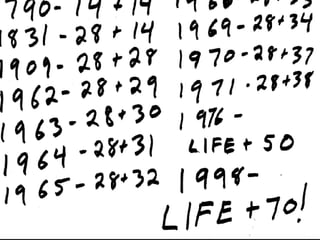 790- 14 + 14
1831 - 28 + 14
1909- 28 + 28
1962- 28 + 29
1963 - 28 + 30
1964 - 28 + 31
1965 - 28 + 32
1969 - 28 + 34
1970 - 28 + 37
1971 - 28 + 38
1976 -
LIFE + 50
1998 -
LIFE + 70!